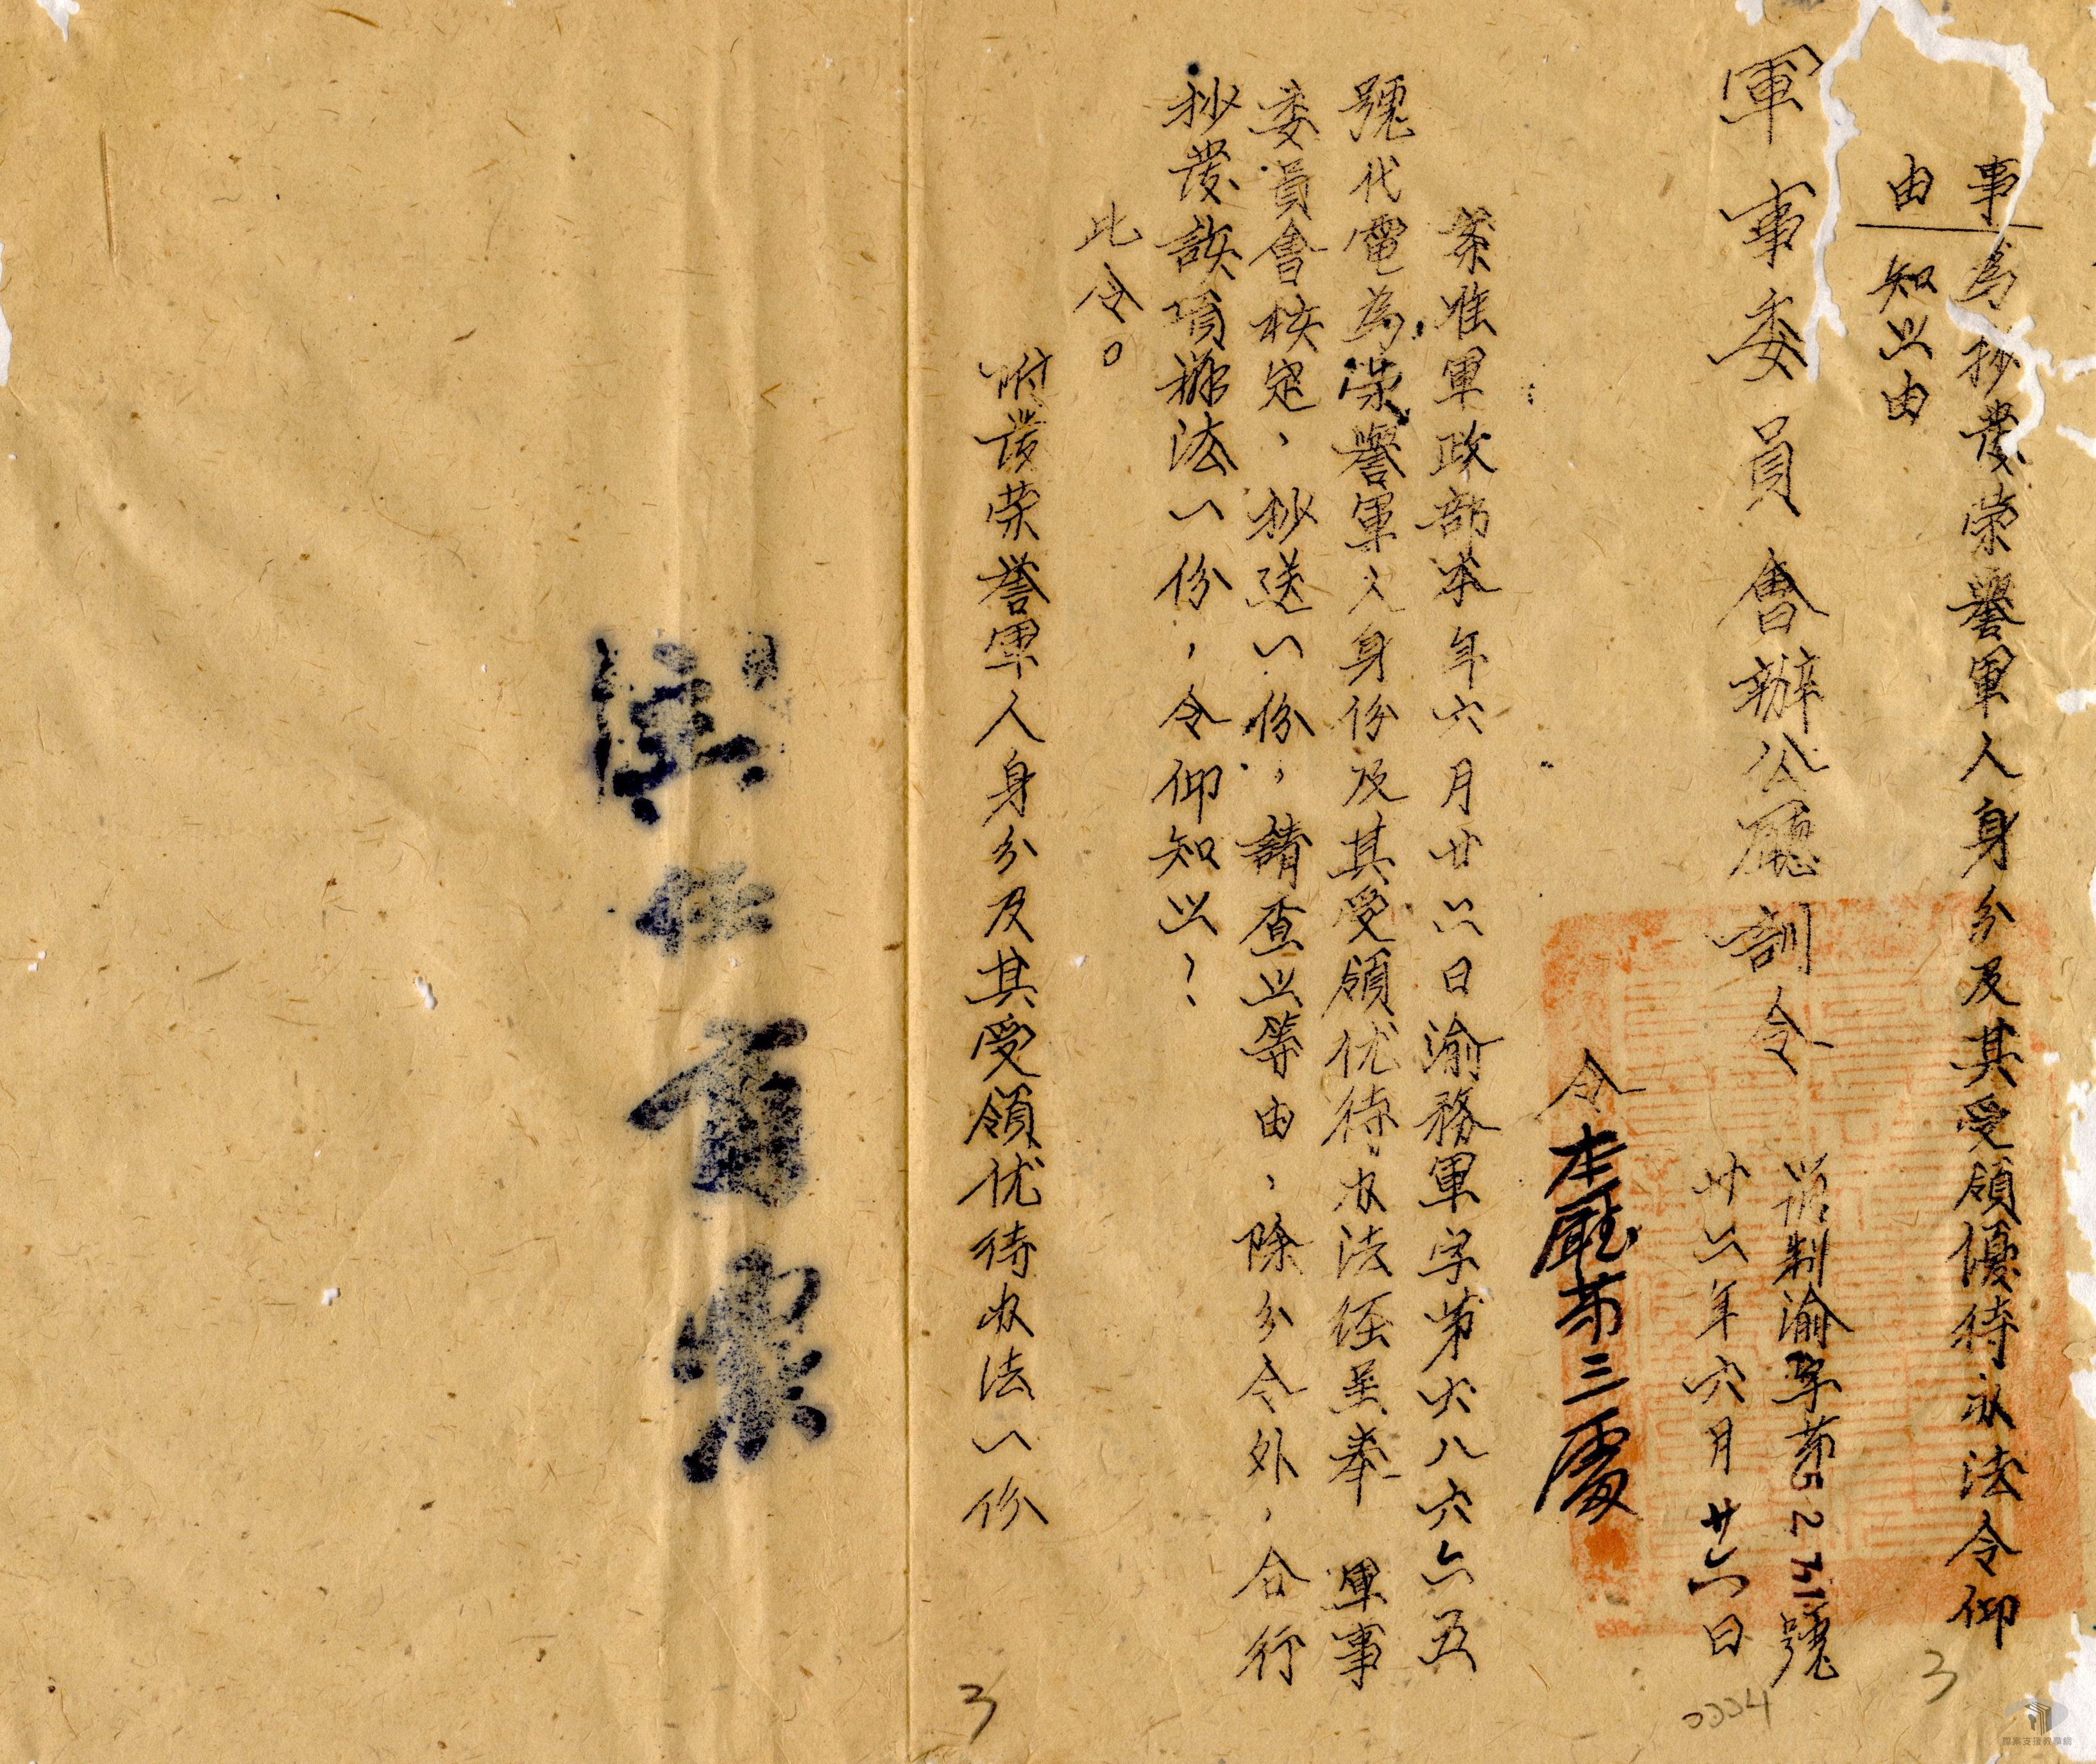 事 為抄發荣譽軍人身分及其受領優待办法令仰
由 知照由
軍事委員會辦公廳訓令
制渝字第5274號
廿六月廿六日
令本廳第三處
案准軍政部本年六月廿六日渝務軍字第六八六六五
號代電為榮譽軍人身份及其受領优待办法經呈奉 軍事
委員會核定、抄送一份,請查照等由、除分令外,合行
抄發該項辦法一份,令仰知照!
此令。
附發荣誉軍人身分及其受領优待办法一份
主任
3
3
0004
檔案支援教學網